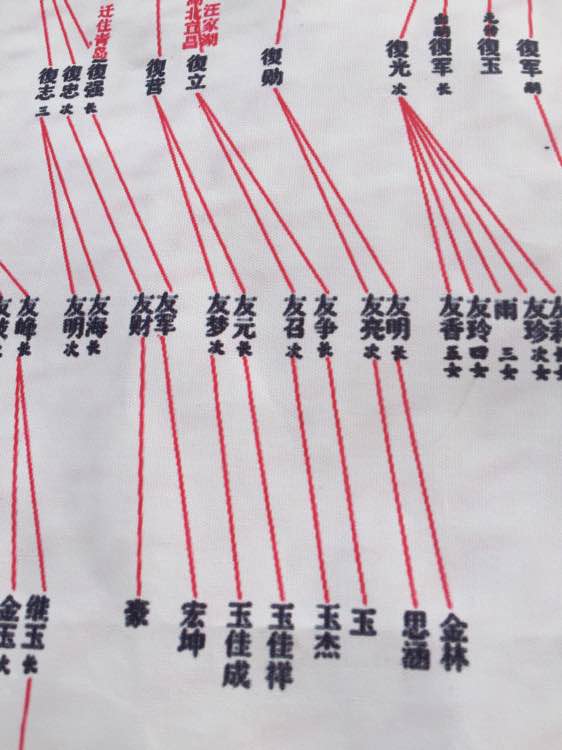 迁住青岛
湖北宜昌
汪家湖
復志 三
復忠 次
復强 长
復营
復立
復勋
復光 次
復军 长
復玉
復军 嗣
友峰 长
友明 次
友海 长
友财
友军
友梦 次
友元 长
友召 次
友争 长
友亮 次
友明 长
友香 五女
友玲 四女
雨 三女
友珍 次女
金玉 次
继玉 长
豪
宏坤
玉佳成
玉佳祥
玉杰
玉
思涵
金林